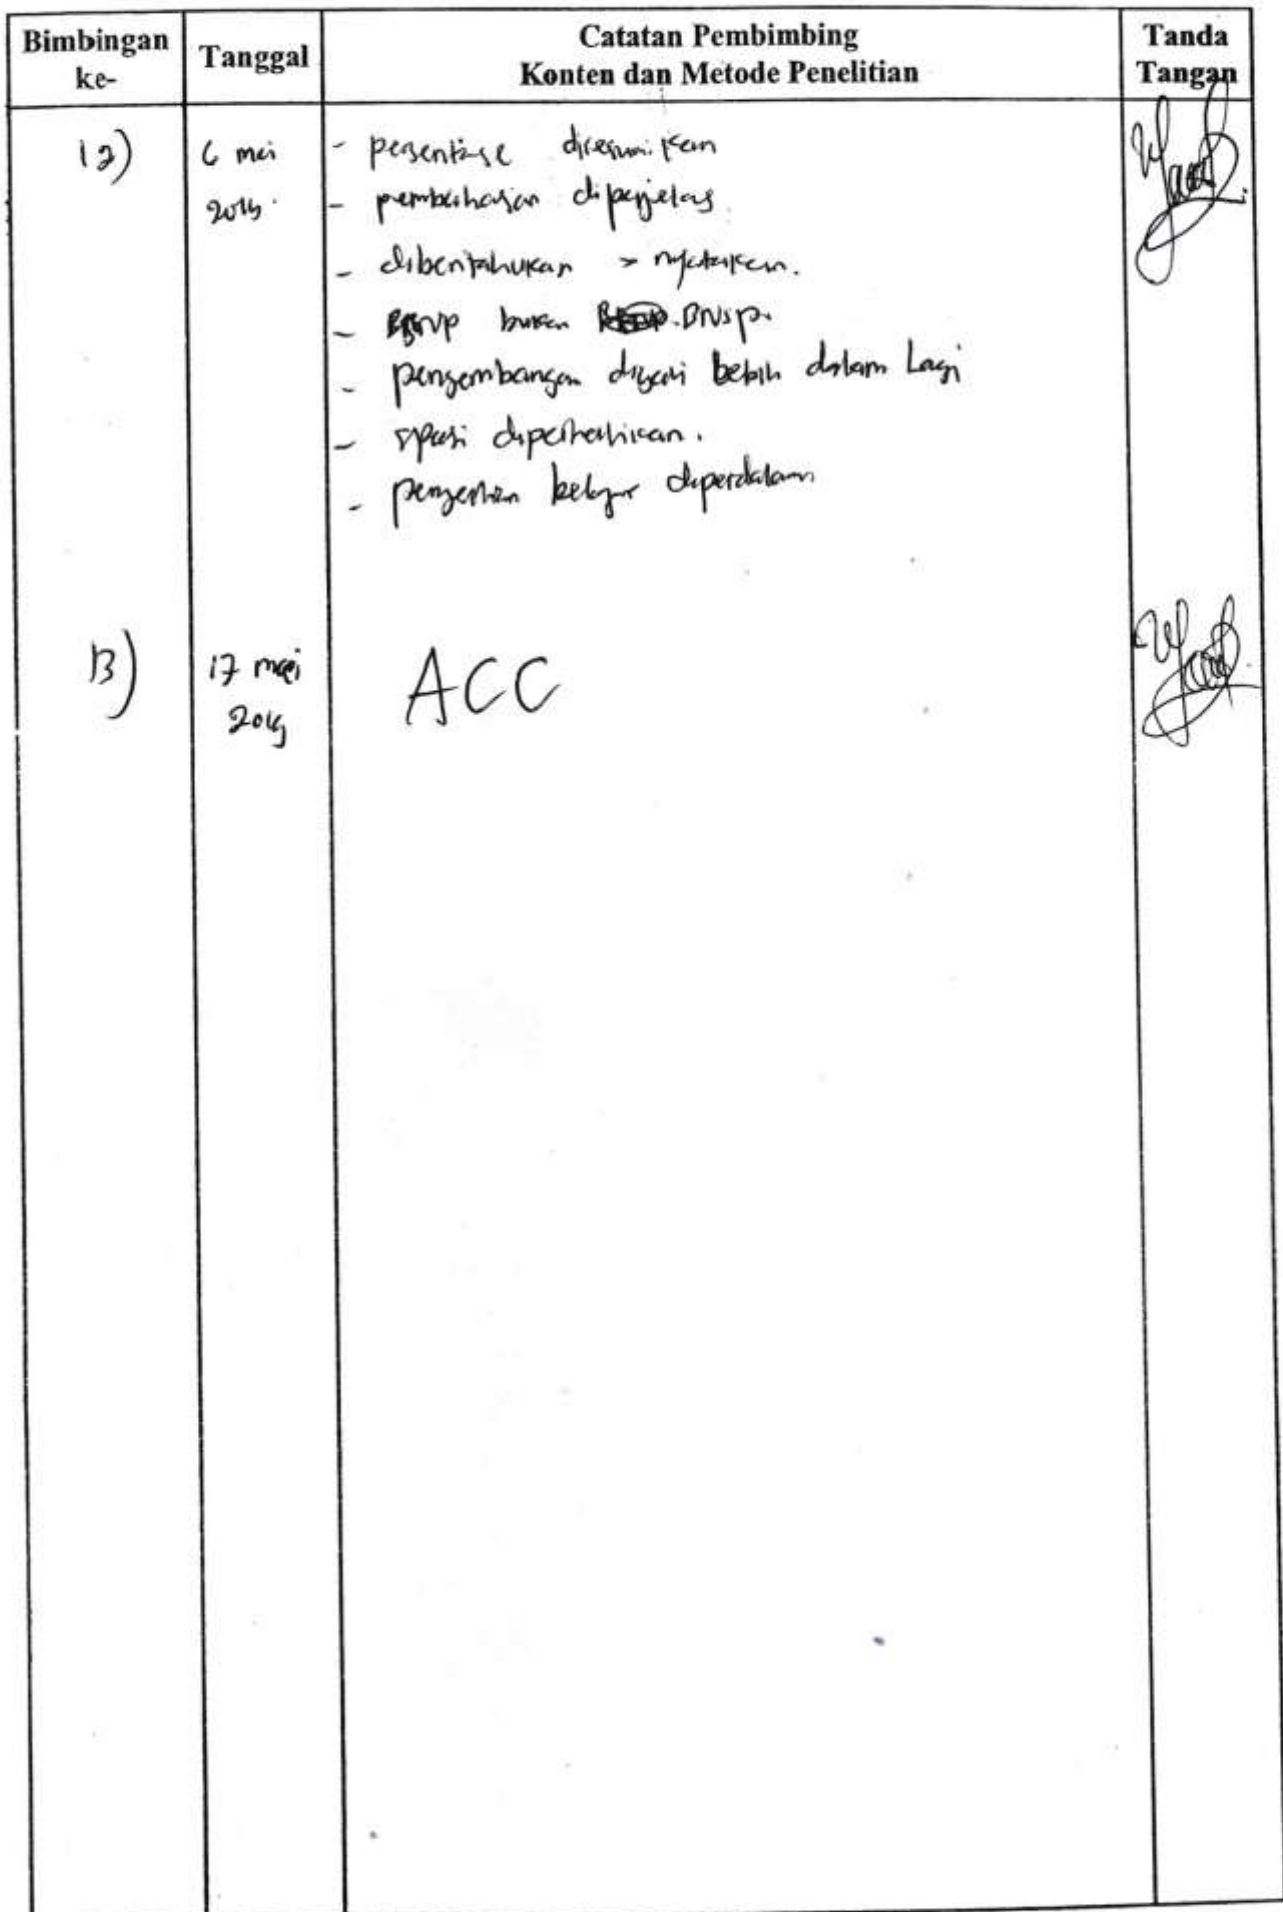 Bimbingan ke-
Tanggal
Catatan Pembimbing
Konten dan Metode Penelitian
Tanda Tangan
12)
6 mei
- persentase
- pembahasan diperjelas
- diberitahukan > nyatakan.
- bukan BNSP.
- pengembangan lebih dalam Lagi
- spasi diperhatikan.
- pengertian belajar diperdalam
13)
17 mei
2019
ACC